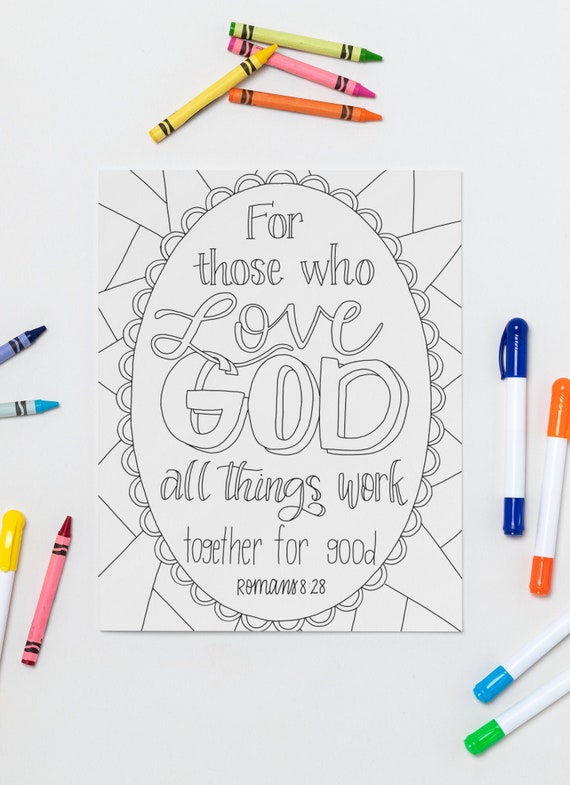 For
those who
Love
GOD
all things work
together for good
Romans 8:28